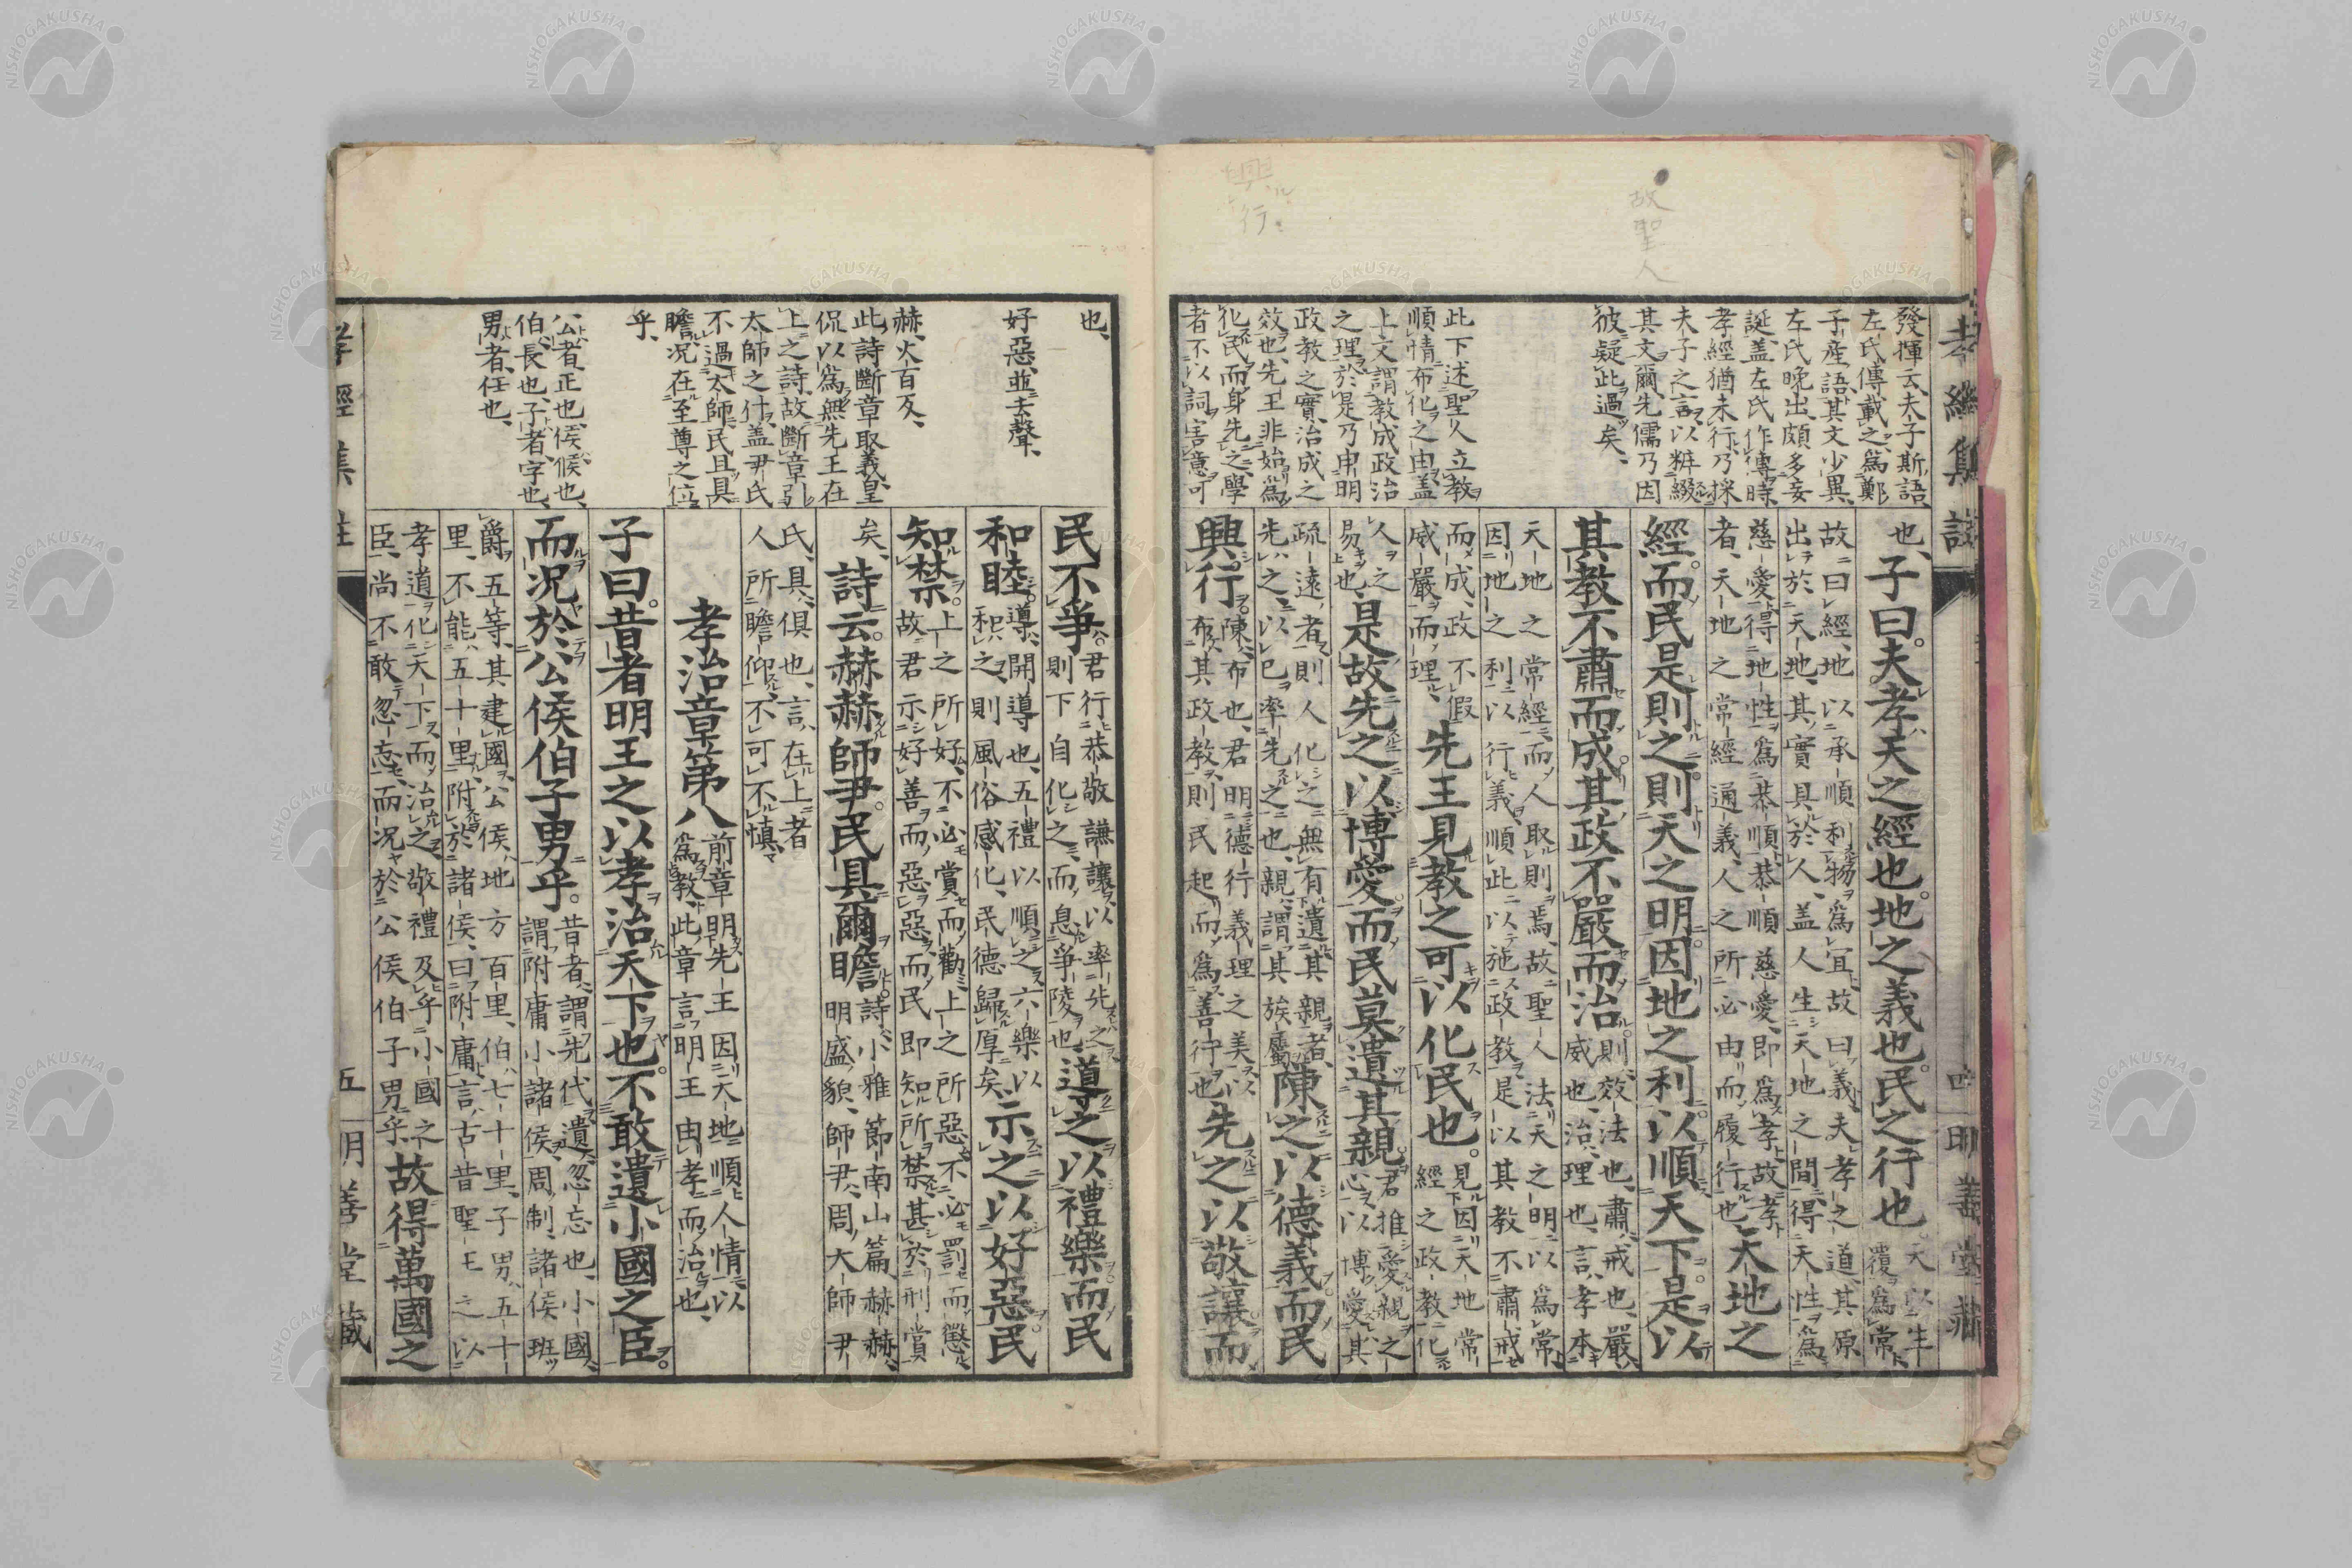 故聖人
興行
孝經集註
四 明善堂藏
發揮云、夫子斯語、
左氏傳載之、爲鄭
子産語、其文少異、
左氏晚出、頗多妄
誕、盖左氏作傳時
孝經猶未行、乃採
夫子之言以辨綴
其文爾、先儒乃因
彼疑此過矣、
此下述聖人立教
順情布化之由、盖
上文謂教成政治
之理、於是乃申明
政教之實、治成之
效也、先王非始爲
化民而身先之學
者不以詞害意可
也、子曰。夫孝天之經也。地之義也。民之行也。天以生
覆爲常、
故曰經、地以承順利物爲宜、故曰義、夫孝之道、其原
出於天地、其實具於人、盖人生天地之間、得天性爲
慈愛、得地性爲恭順、恭順慈愛、即爲孝、故孝
者、天地之常經通義、人之所必由而履行也、天地之
經。而民是則之。則天之明。因地之利。以順天下。是以
其教不肅而成。其政不嚴而治。則、效法也、肅、戒也、嚴、
威也、治、理也、言、孝本
天地之常經、而人取則焉、故聖人法天之明以爲常、
因地之利以行義、順此以施政教、是以其教不肅戒
而成、政不假
威嚴而理、先王見教之可以化民也。見因天地常
經之政教、化
人之
易也、是故先之以博愛。而民莫遺其親。君推愛親之
心以博愛其
疏遠者、則人化之、無有遺其親者、陳之以德義。而民
先之、以己率先之也、親謂其族屬、
興行。陳、布也、君明德行義理之美、以
布其政教、則民起而爲善行也、先之以敬讓。而
也、
好惡、並去聲、
赫、火百反、
此詩斷章取義、皇
侃以爲、無先王在
上之詩、故斷章引
太師之什、盖尹氏
不過太師、民且具
瞻、况在至尊之位
乎、
公者、正也、侯候也、
伯、長也、子者、字也、
男者、任也、
民不爭。君行恭敬謙讓、以率先之、
則下自化之、而息爭陵也、導之以禮樂。而民
和睦。導、開導也、五禮以順之、六樂以
和之、則風俗感化、民德歸厚矣、示之以好惡。民
知禁。上之所好、不必賞而勸、上之所惡、不必罰而懲、
故君示好善而惡惡、而民即知所禁、甚於刑賞
矣、詩云。赫赫師尹。民具爾瞻。詩、小雅節南山篇、赫赫、
明盛貌、師尹、周大師尹
氏、具、俱也、言、在上者
人所瞻仰、不可不慎、
孝治章第八 前章明先王因天地順人情以
爲教、此章言明王由孝而治也、
子曰。昔者明王之以孝治天下也。不敢遺小國之臣。
而况於公侯伯子男乎。昔者、謂先代、遺、忽忘也、小國、
謂附庸小諸侯、周制、諸侯班
爵五等、其建國、公侯地方百里、伯七十里、子男五十
里、不能五十里、附於諸侯、曰附庸、言、古昔聖王之以
孝道化天下、而治之、敬禮及乎小國之
臣、尚不敢忽忘、而况於公侯伯子男乎、故得萬國之
孝經集註
五 明善堂藏